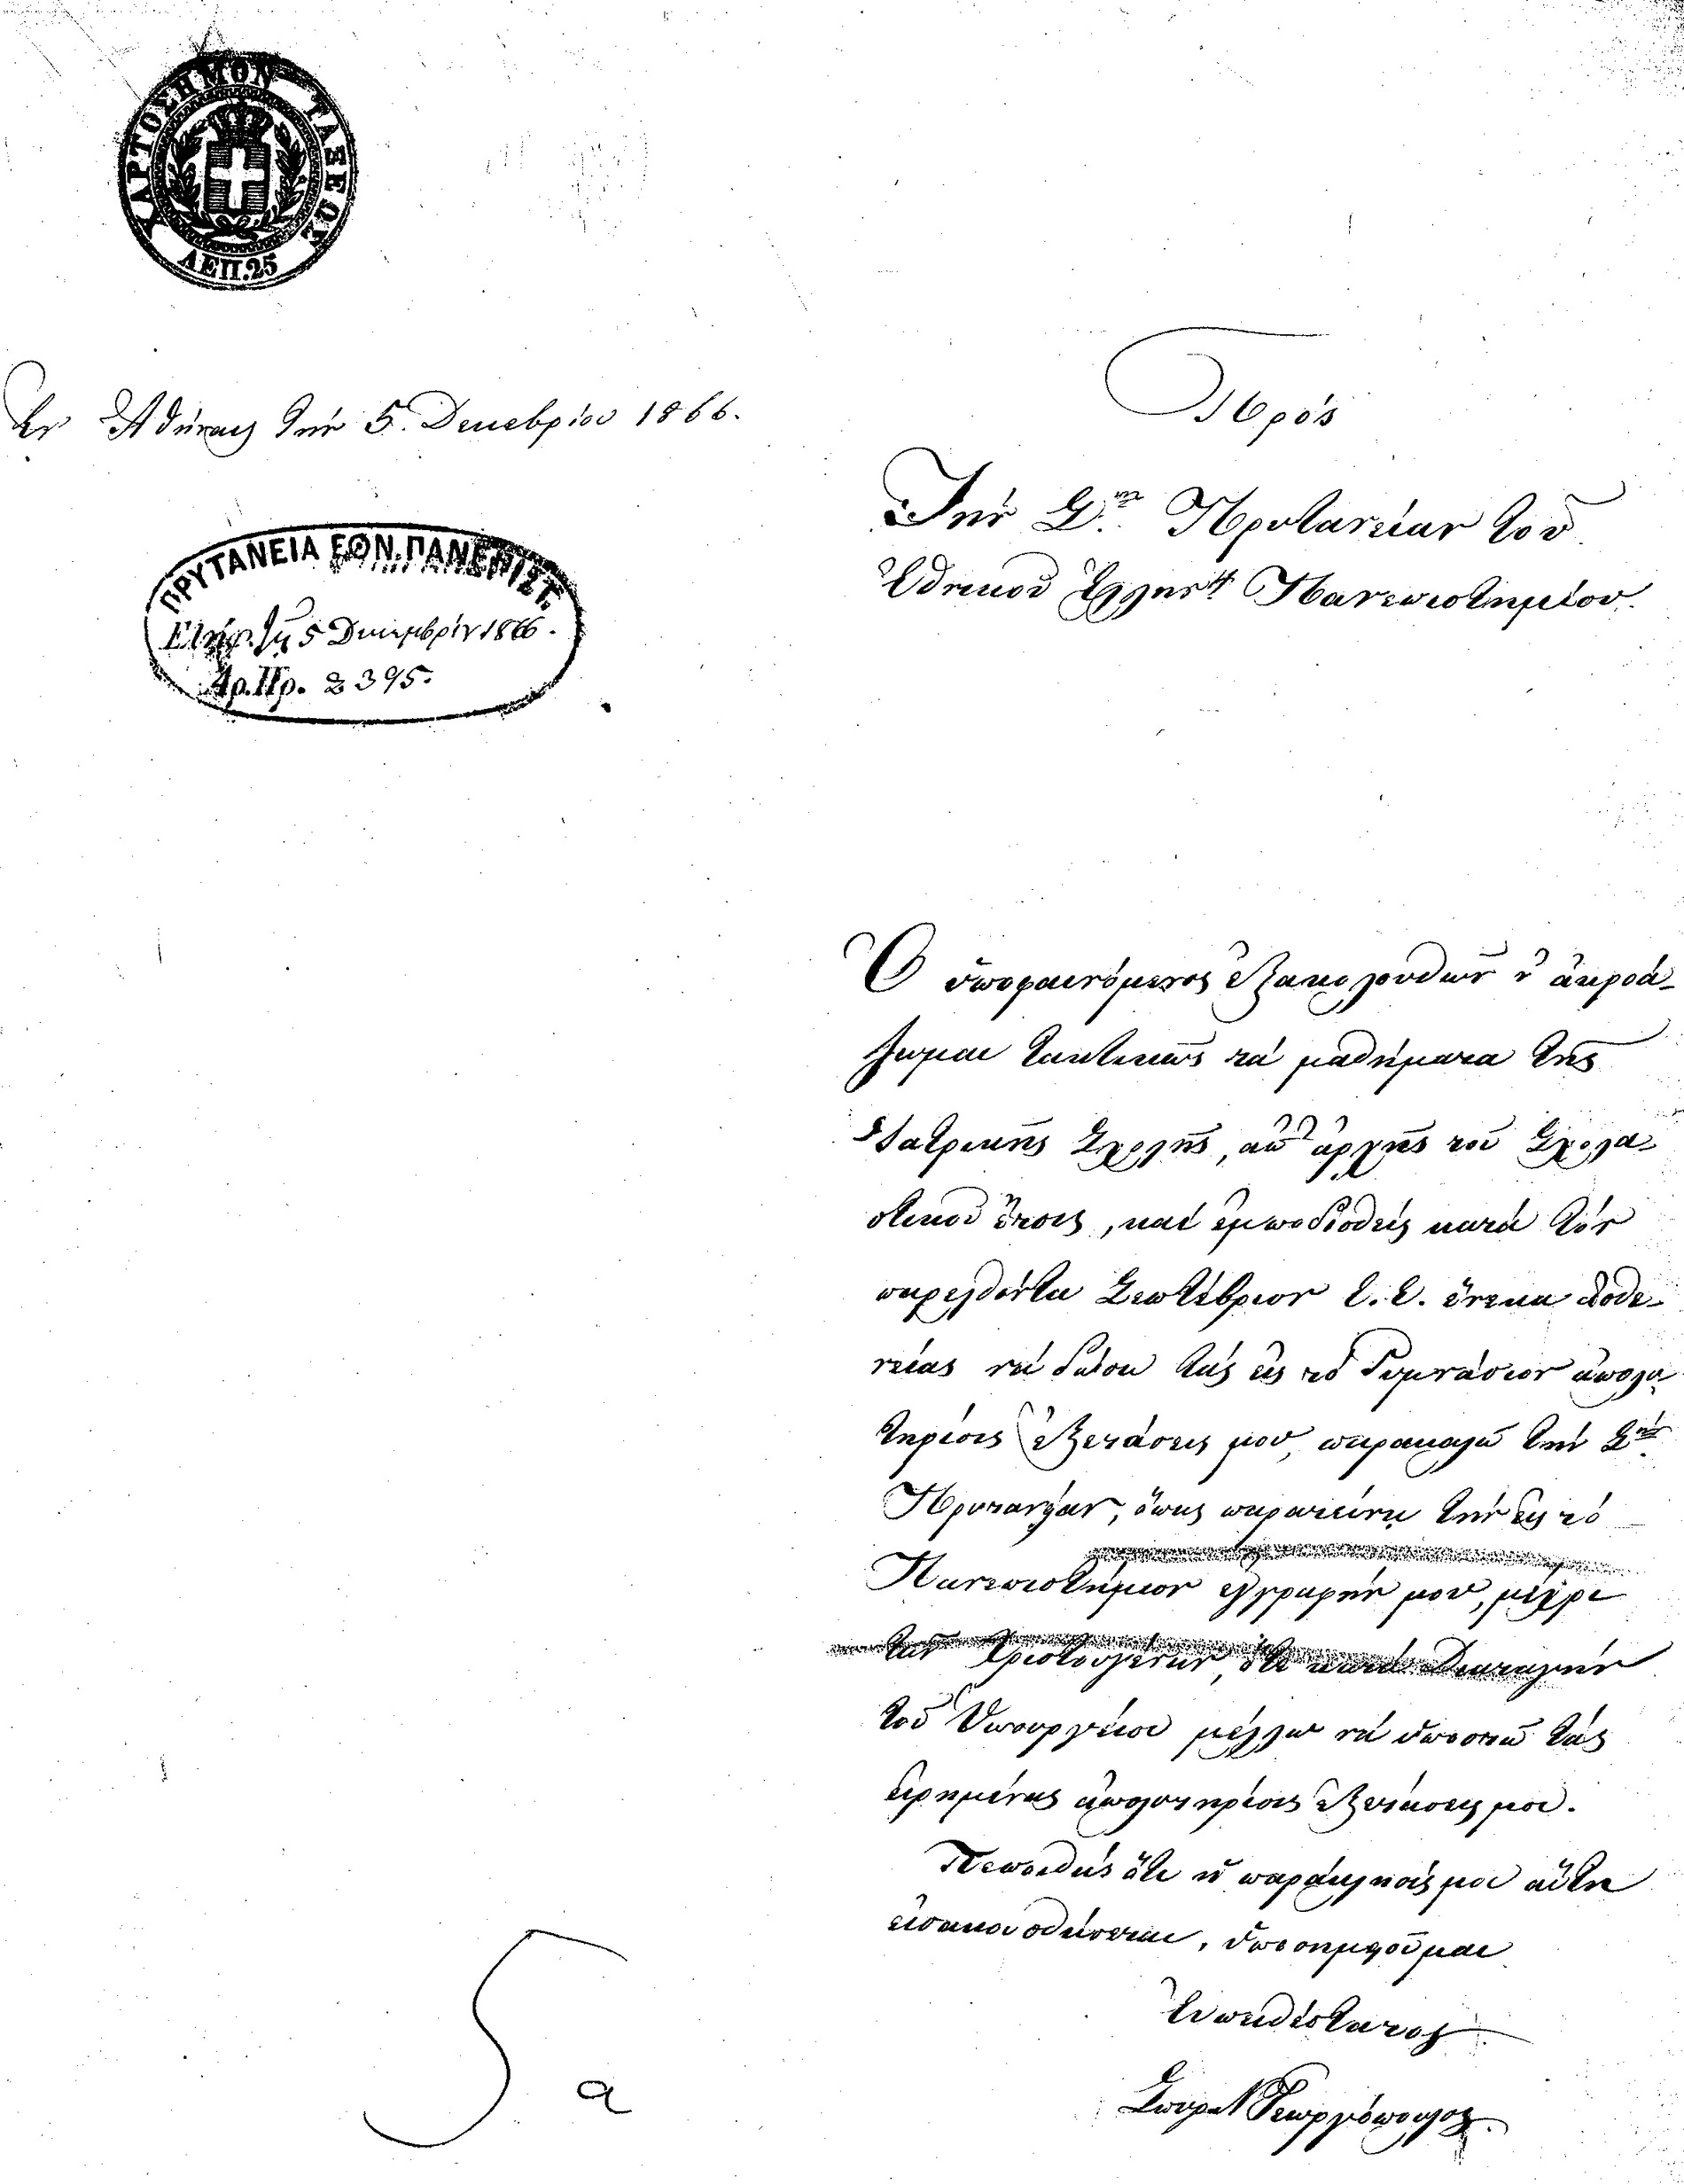 ΧΑΡΤΟΣΗΜΟΝ ΤΑΞΕΩΣ
ΛΕΠ. 25
Ἐν Ἀθήναις τήν 5 Δεκεβρίου 1866.
ΠΡΥΤΑΝΕΙΑ ΕΘΝ. ΠΑΝΕΠΙΣΤ.
Ἐλήφ. τῇ 5 Δεκεμβρίου 1866.
Ἀρ. Πρ. 2395.
Πρός
Τήν Σ.ην Πρυτανείαν τοῦ
Ἐθνικοῦ Ἑλλην. Πανεπιστημίου.
Ὁ ὑποφαινόμενος ἐξακολουθῶν ν' ἀκροά-
ζωμαι τακτικῶς τά μαθήματα τῆς
Ἰατρικῆς Σχολῆς, ἀπ' ἀρχῆς τοῦ Σχολα-
στικοῦ ἔτους, καί ἐμποδισθείς κατά τόν
παρελθόντα Σεπτέβριον ἔ.ἔ. ἕνεκα ἀσθε-
νείας νά δώσω τάς εἰς τό Γυμνάσιον ἀπολυ-
τηρίους ἐξετάσεις μου, παρακαλῶ τήν Σ.ήν
Πρυτανείαν, ὅπως παρατείνῃ τήν εἰς τό
Πανεπιστήμιον ἐγγραφήν μου, μέχρι
τῶν Χριστουγέννων, ὅτε κατά Διαταγήν
τοῦ Ὑπουργείου μέλλω νά ὑποστῶ τάς
εἰρημένας ἀπολυτηρίους ἐξετάσεις μου.
Πεποιθώς ὅτι ἡ παράκλησίς μου αὕτη
εἰσακουσθήσεται, ὑποσημειοῦμαι
Εὐπειθέστατος
Σπυρ. Ν Γεωργόπουλος.
5 α